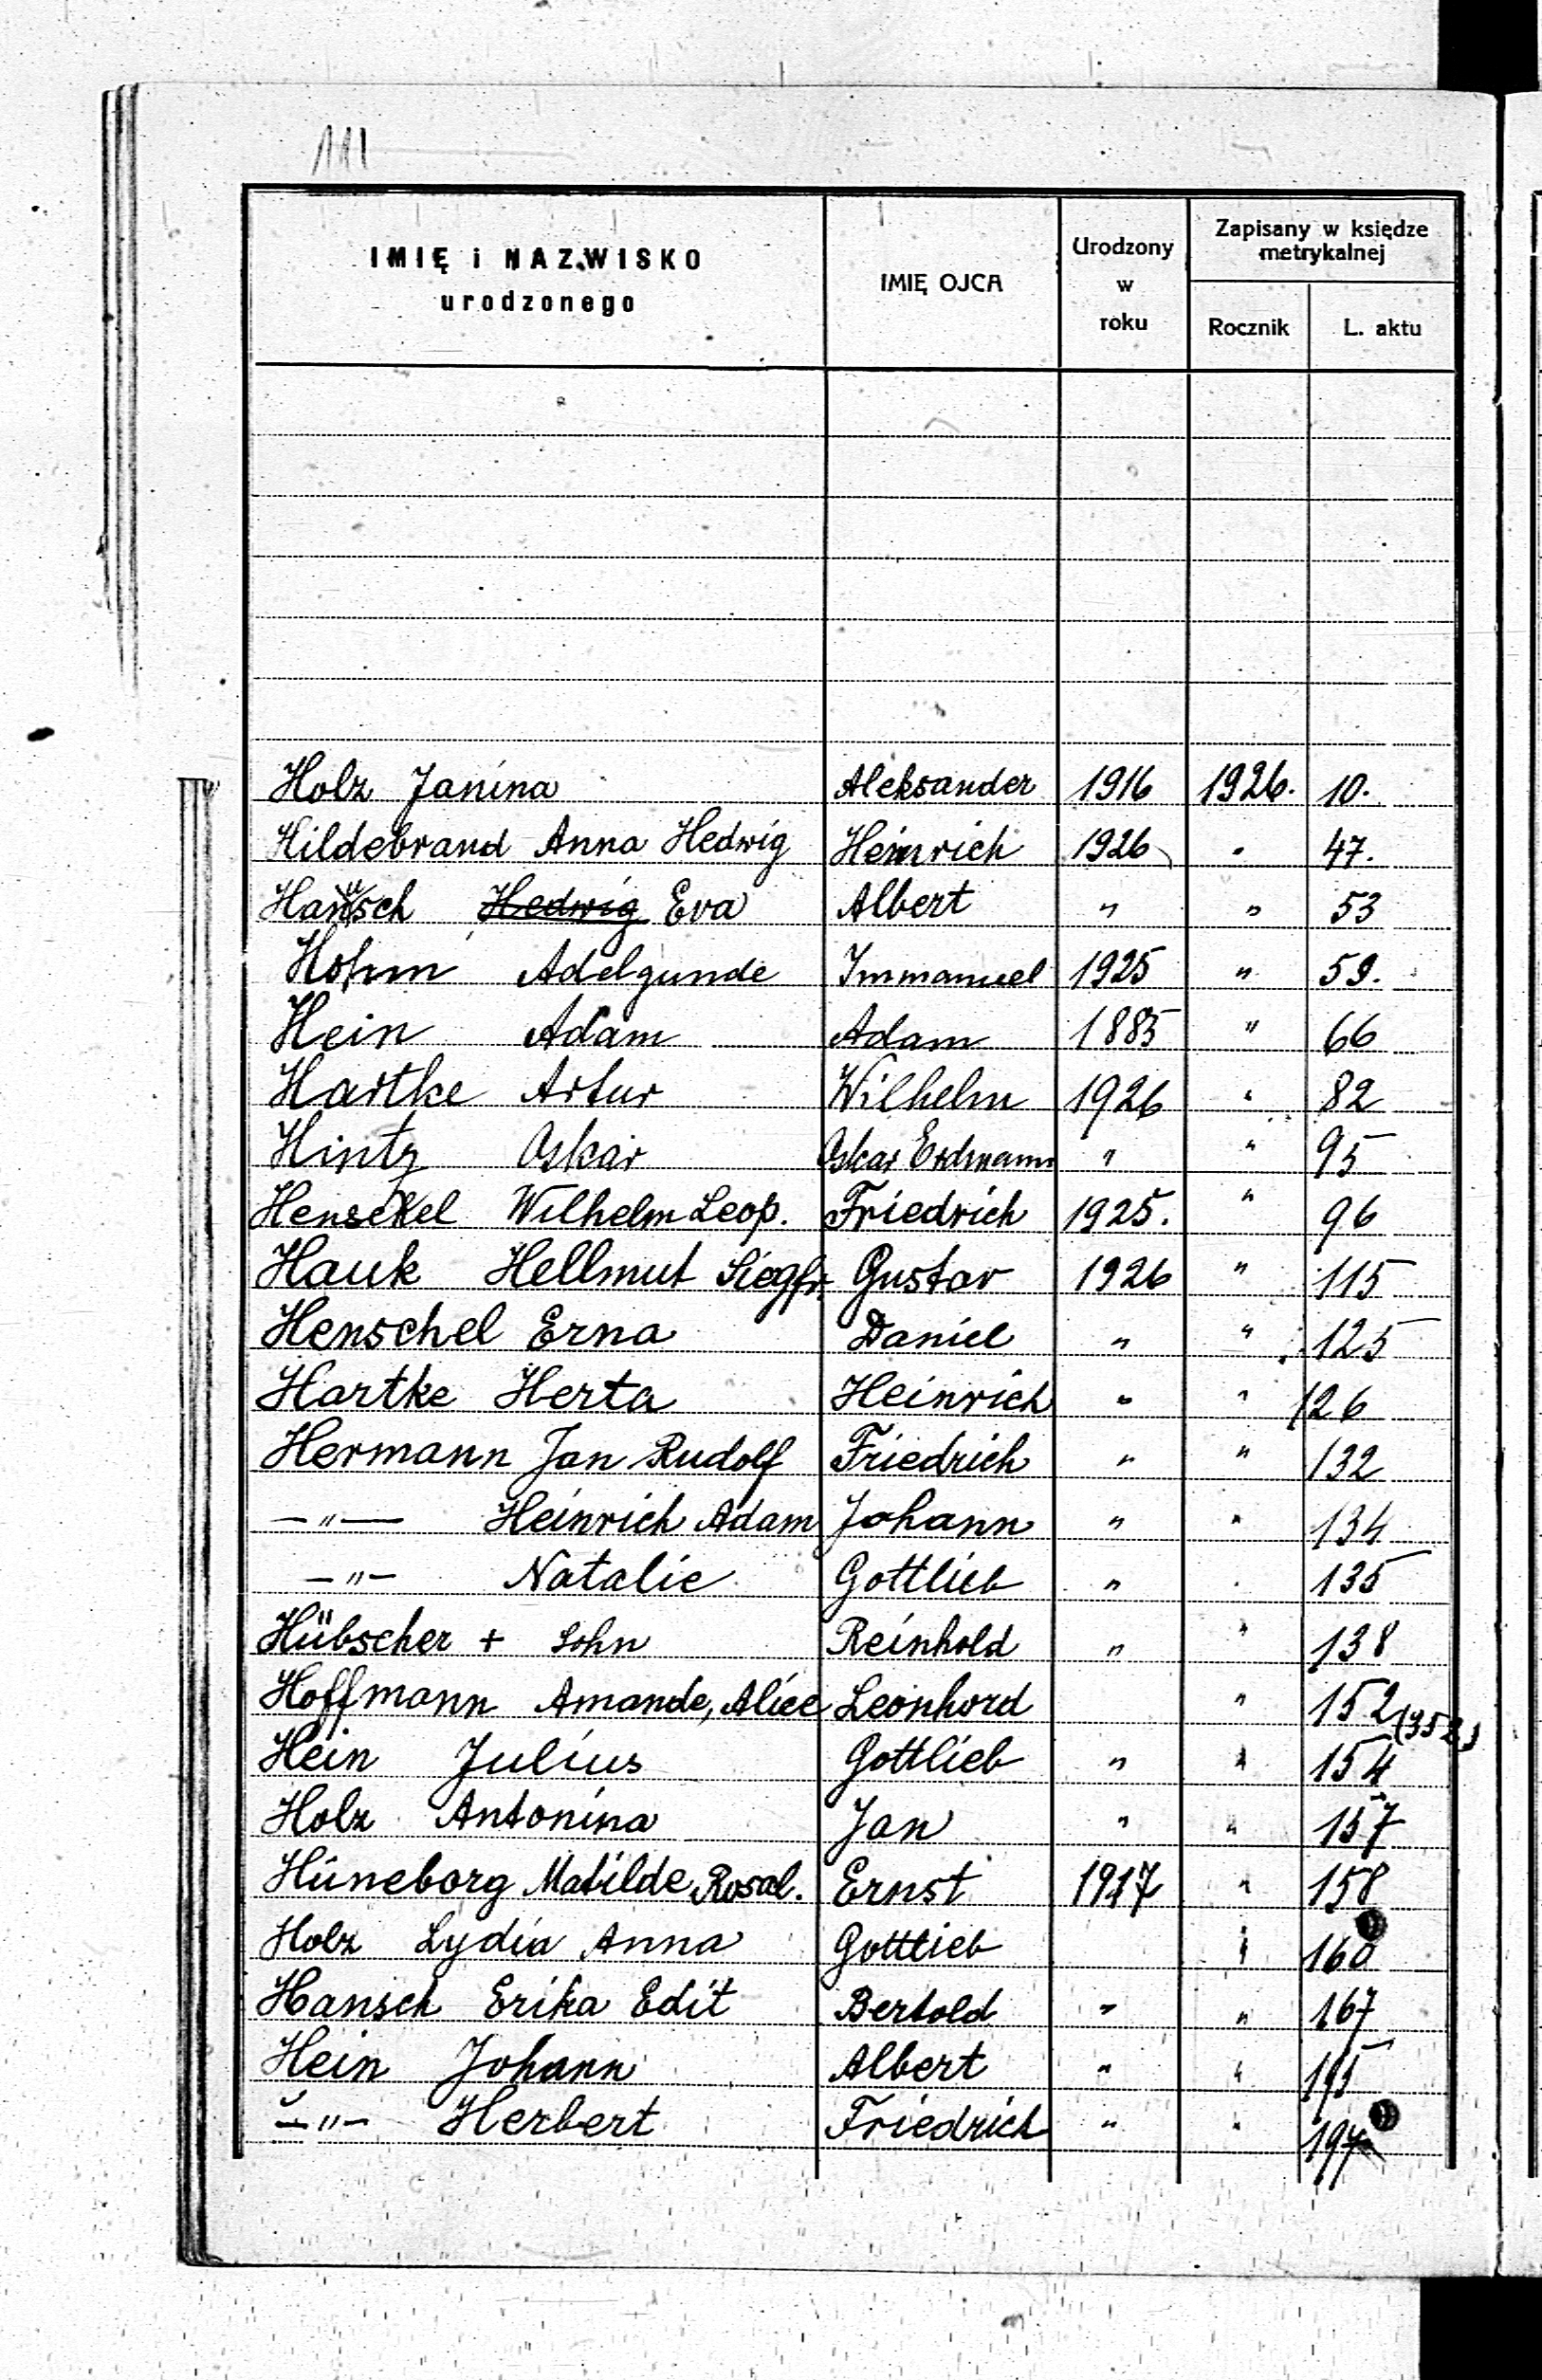 111
IMIĘ i NAZWISKO urodzonego IMIĘ OJCA Urodzony w roku Zapisany w księdze metrykalnej Rocznik L. aktu
Holz Janina Aleksander 1916 1926. 10.
Hildebrand Anna Hedwig Heinrich 1926 " 47.
Hansch Hedwig Eva Albert " " 53
Hohm Adelgunde Immanuel 1925 " 59.
Hein Adam Adam 1885 " 66
Hartke Artur Wilhelm 1926 " 82
Hintz Oskar Oskar Erdmann " " 95
Henschel Wilhelm Leop. Friedrich 1925. " 96
Hauk Hellmut Siegfr. Gustav 1926 " 115
Henschel Erna Daniel " " 125
Hartke Herta Heinrich " " 126
Hermann Jan Rudolf Friedrich " " 132
—"— Heinrich Adam Johann " " 134
—"— Natalie Gottlieb " " 135
Hübscher + Sohn Reinhold " " 138
Hoffmann Amande, Alice Leonhord " 152 (352)
Hein Julius Gottlieb " " 154
Holz Antonina Jan " " 157
Hüneborg Matilde Rosal. Ernst 1917 " 158
Holz Lydia Anna Gottlieb " 160
Hansch Erika Edit Bertold " " 167
Hein Johann Albert " " 195
—"— Herbert Friedrich " " 197